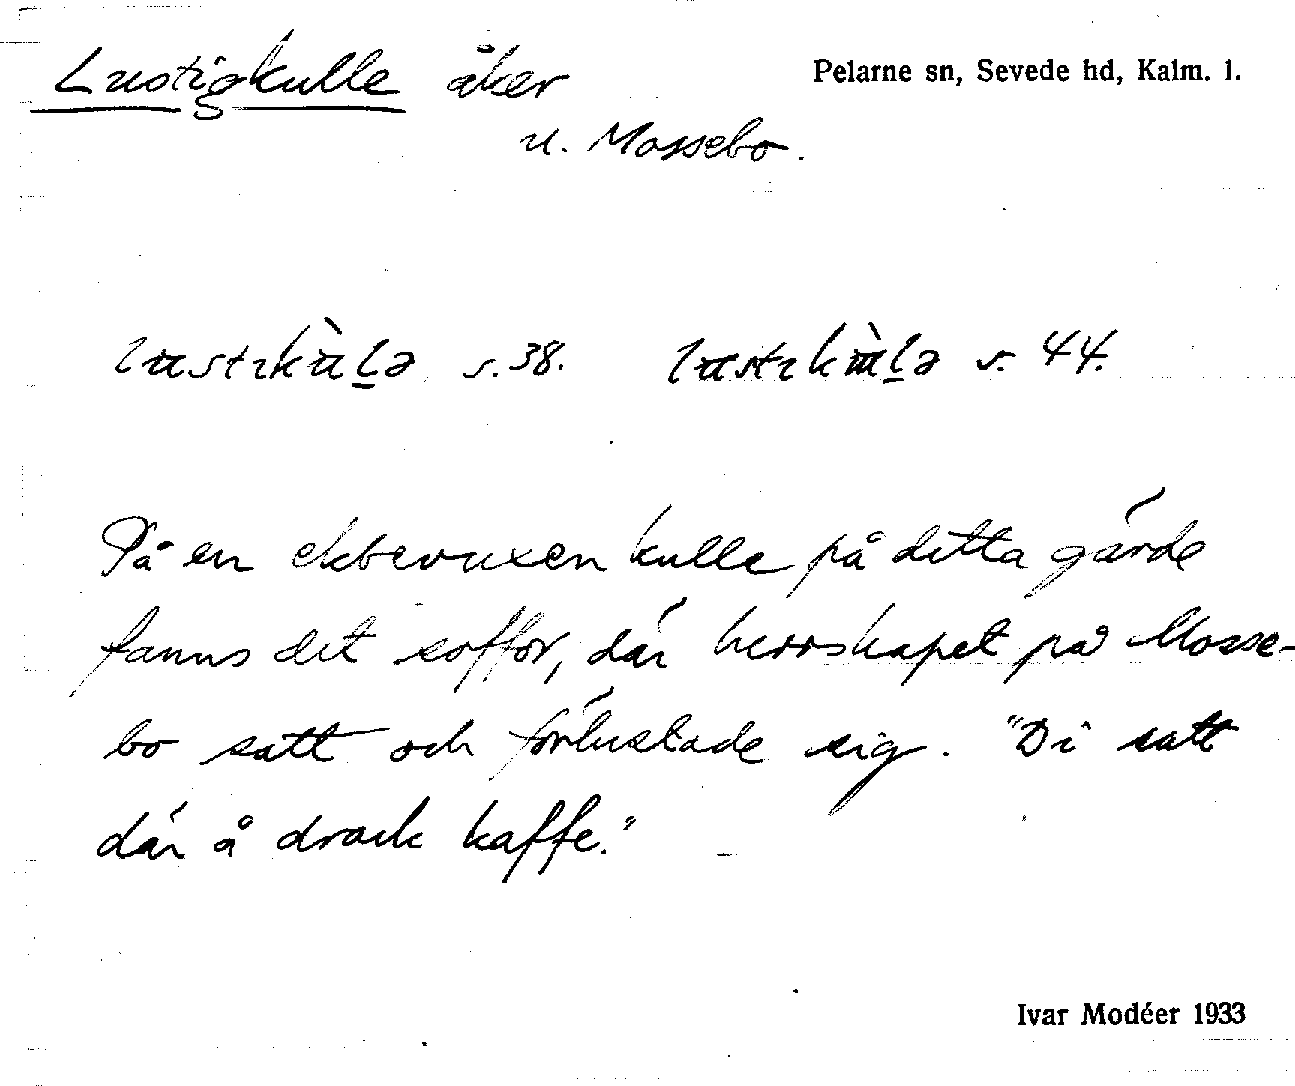 Lustigkulle åker
Pelarne sn, Sevede hd, Kalm. l.
u. Mossebo.
s. 38. s. 44.
På en ekbevuxen kulle på detta gärde
fanns det soffor, där herrskapet på Mosse-
bo satt och förlustade sig. "Di satt
där å drack kaffe."
Ivar Modéer 1933